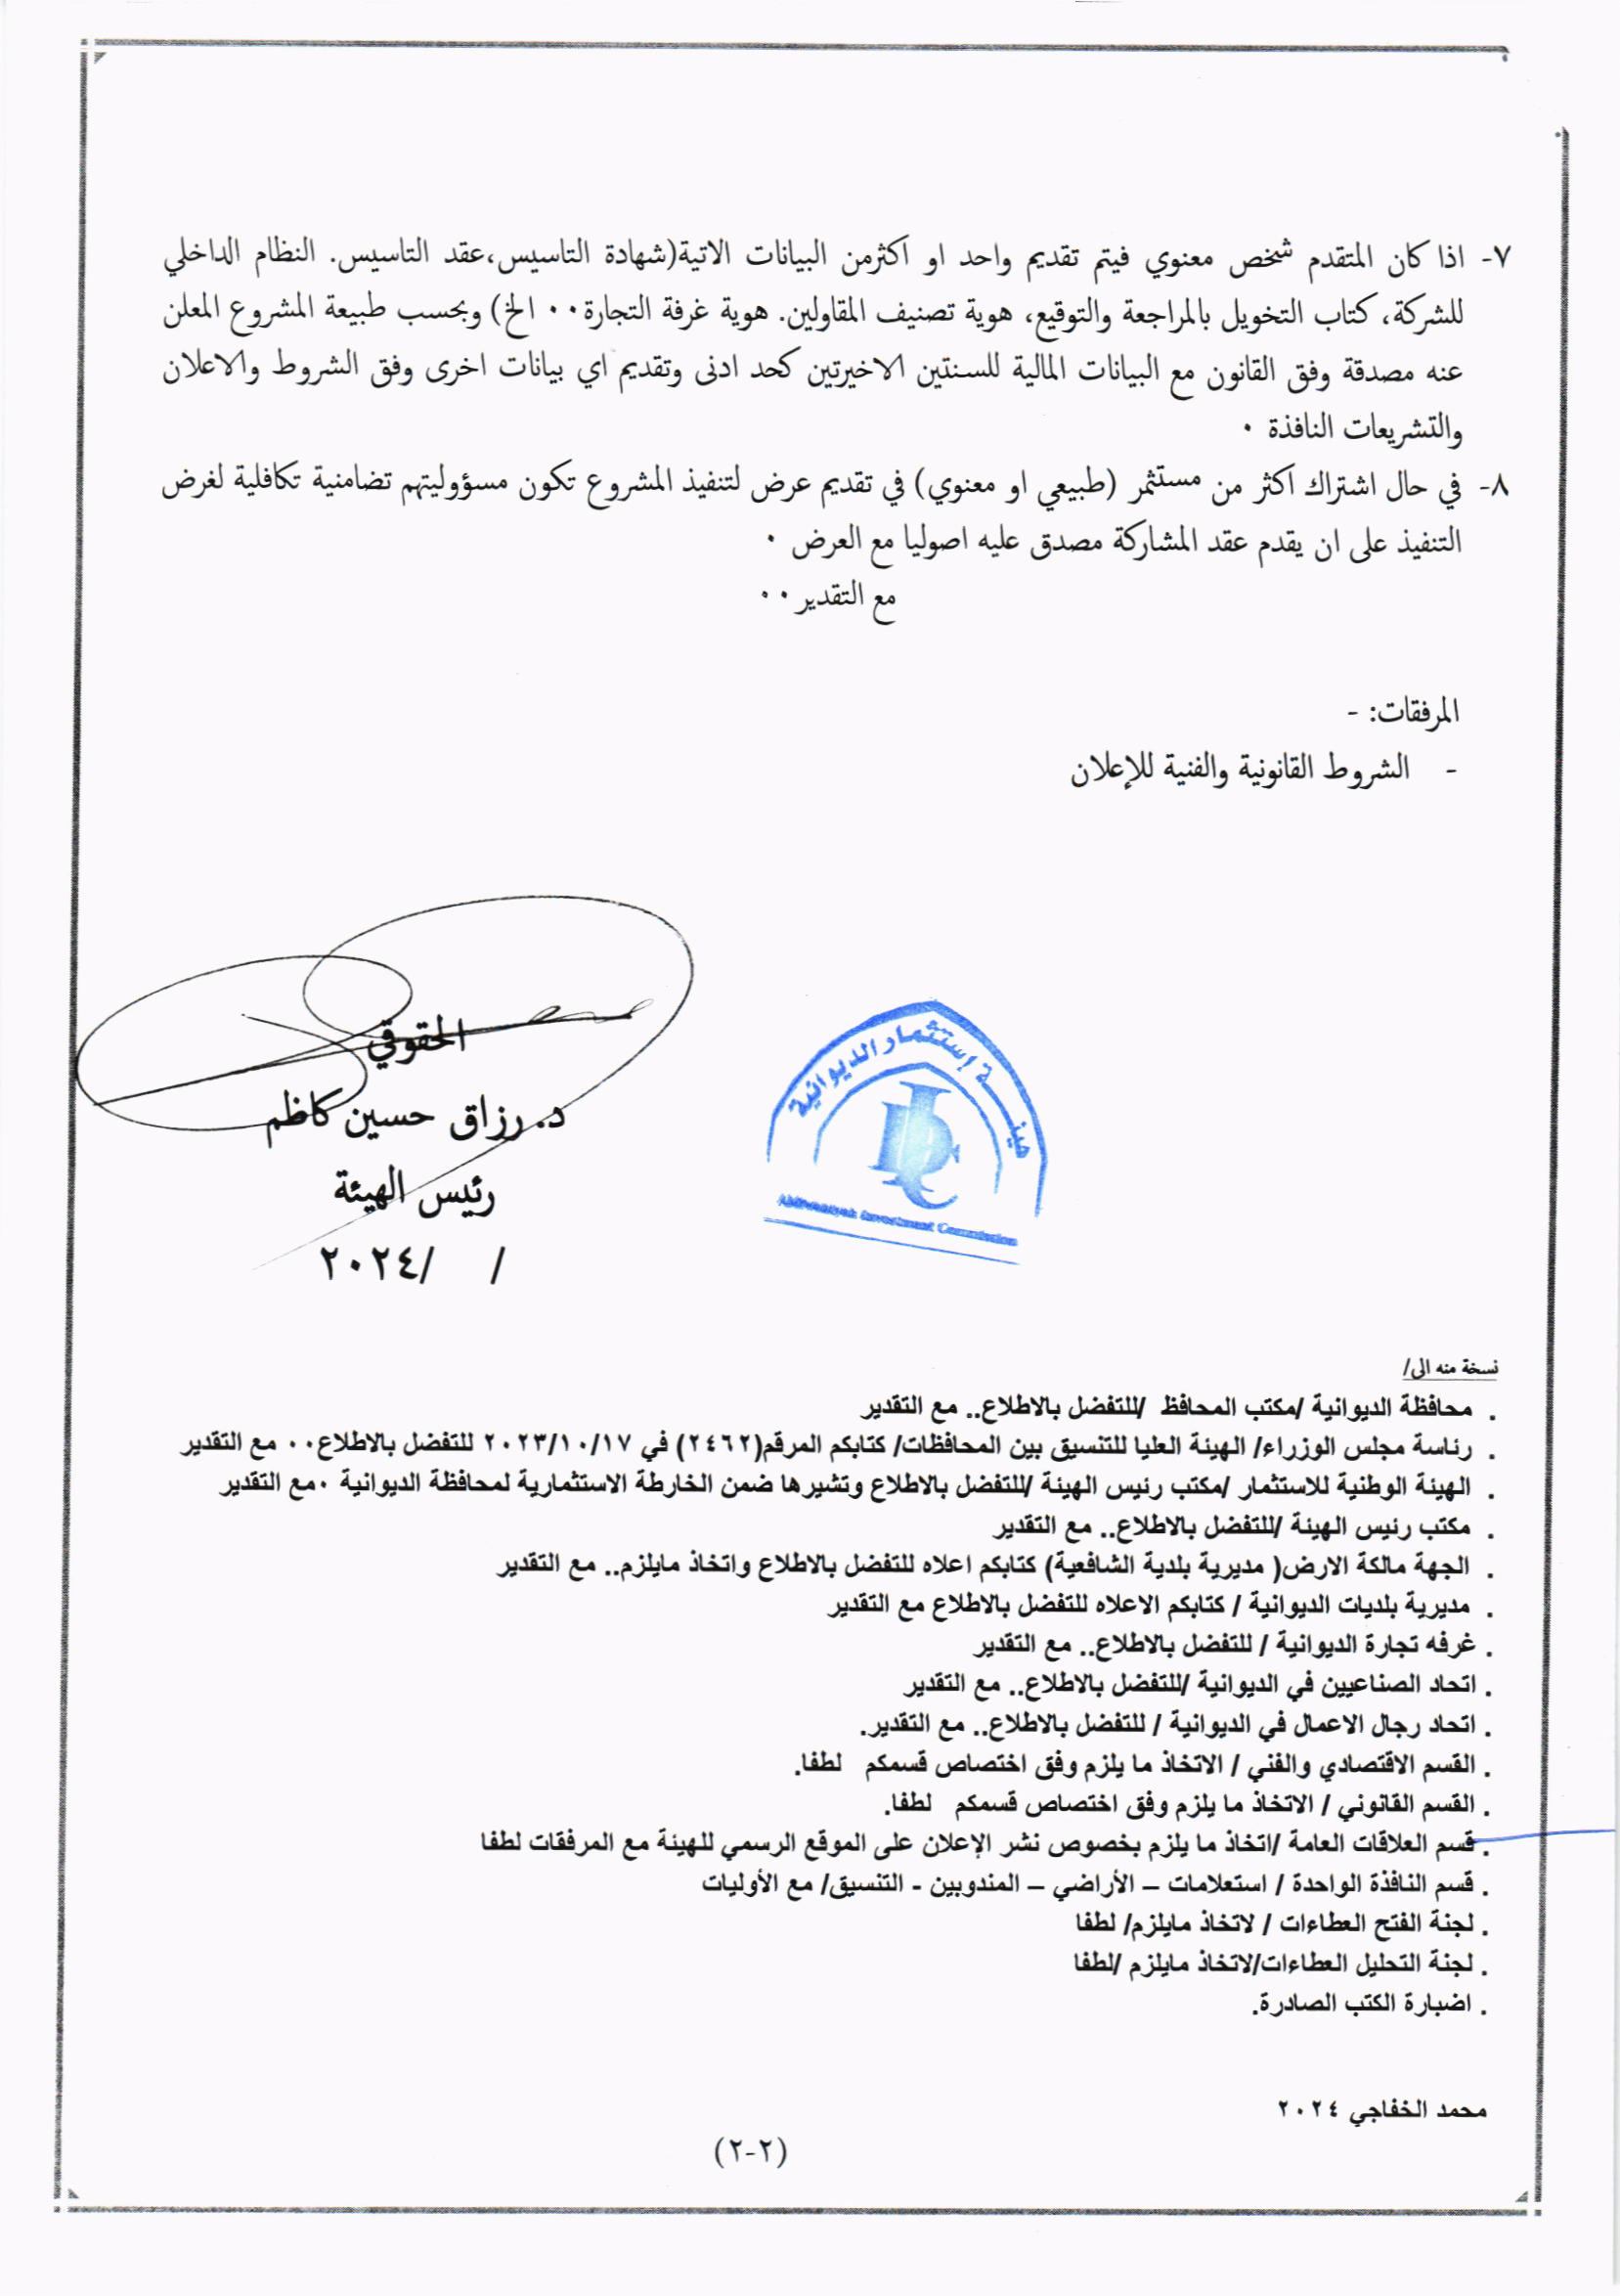 ٧- اذا كان المتقدم شخص معنوي فيتم تقديم واحد او اكثرمن البيانات الاتية(شهادة التاسيس،عقد التاسيس. النظام الداخلي
للشركة، كتاب التخويل بالمراجعة والتوقيع، هوية تصنيف المقاولين. هوية غرفة التجارة٠٠ الخ) وبحسب طبيعة المشروع المعلن
عنه مصدقة وفق القانون مع البيانات المالية للسنتين الاخيرتين كحد ادنى وتقديم اي بيانات اخرى وفق الشروط والاعلان
والتشريعات النافذة ٠
٨- في حال اشتراك اكثر من مستثمر (طبيعي او معنوي) في تقديم عرض لتنفيذ المشروع تكون مسؤوليتهم تضامنية تكافلية لغرض
التنفيذ على ان يقدم عقد المشاركة مصدق عليه اصوليا مع العرض ٠
مع التقدير٠٠
المرفقات: -
- الشروط القانونية والفنية للإعلان
هيئـــة إستثمار الديوانية
Aldiwaniyah Investment Commission
الحقوقي
د. رزاق حسين كاظم
رئيس الهيئة
/ /٢٠٢٤
نسخة منه الى/
. محافظة الديوانية /مكتب المحافظ /للتفضل بالاطلاع.. مع التقدير
. رئاسة مجلس الوزراء/ الهيئة العليا للتنسيق بين المحافظات/ كتابكم المرقم(٢٤٦٢) في ٢٠٢٣/١٠/١٧ للتفضل بالاطلاع٠٠ مع التقدير
. الهيئة الوطنية للاستثمار /مكتب رئيس الهيئة /للتفضل بالاطلاع وتشيرها ضمن الخارطة الاستثمارية لمحافظة الديوانية ٠مع التقدير
. مكتب رئيس الهيئة /للتفضل بالاطلاع.. مع التقدير
. الجهة مالكة الارض( مديرية بلدية الشافعية) كتابكم اعلاه للتفضل بالاطلاع واتخاذ مايلزم.. مع التقدير
. مديرية بلديات الديوانية / كتابكم الاعلاه للتفضل بالاطلاع مع التقدير
. غرفه تجارة الديوانية / للتفضل بالاطلاع.. مع التقدير
. اتحاد الصناعيين في الديوانية /للتفضل بالاطلاع.. مع التقدير
. اتحاد رجال الاعمال في الديوانية / للتفضل بالاطلاع.. مع التقدير.
. القسم الاقتصادي والفني / الاتخاذ ما يلزم وفق اختصاص قسمكم لطفا.
. القسم القانوني / الاتخاذ ما يلزم وفق اختصاص قسمكم لطفا.
. قسم العلاقات العامة /اتخاذ ما يلزم بخصوص نشر الإعلان على الموقع الرسمي للهيئة مع المرفقات لطفا
. قسم النافذة الواحدة / استعلامات – الأراضي – المندوبين - التنسيق/ مع الأوليات
. لجنة الفتح العطاءات / لاتخاذ مايلزم/ لطفا
. لجنة التحليل العطاءات/لاتخاذ مايلزم /لطفا
. اضبارة الكتب الصادرة.
محمد الخفاجي ٢٠٢٤
(٢-٢)